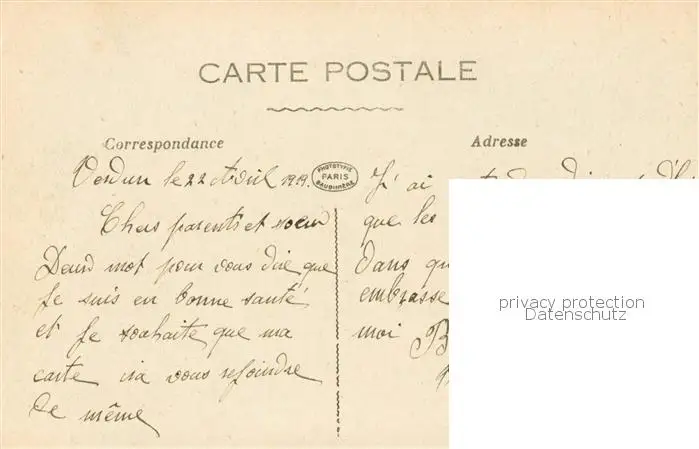 CARTE POSTALE
Correspondance
Adresse
Verdun le 22 Avril 1919.
PHOTOTYPIE
PARIS
BAUDINIÈRE
Chers parents et soeur
Deux mot pour vous dire que
Je suis en bonne santé
et Je souhaite que ma
carte ira vous rejoindre
de même
J'ai
que les
dans
embrasse
moi
privacy protection
Datenschutz